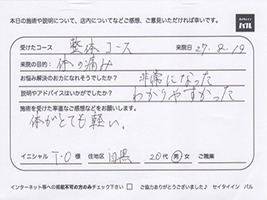 本日の施術や説明について、店内についてなどご感想、ご意見いただければ幸いです。
バル
受けたコース 整体コース 来院日 27.8.19
来院の目的: 体の痛み
お悩み解決のお力になれそうでしたか? 非常になった
説明やアドバイスはいかがでしたか? わかりやすかった
施術を受けた率直なご感想などをお願いします。
体がとても軽い。
イニシャル T.O 様 住地区 目黒 20代 男 女 ご職業
インターネット等への掲載不可の方のみチェック下さい □ ご協力ありがとうございました♪ セイタイイン バル